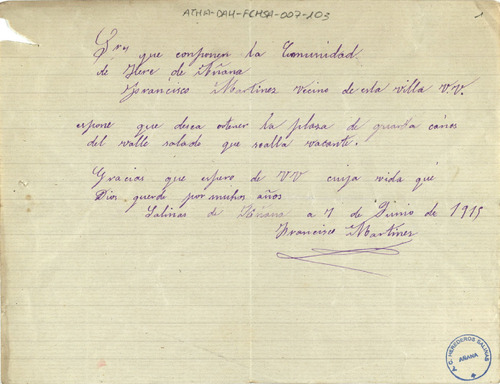 ATHA-DAH-FCHSA-007-103
1
Sres que componen la Comunidad
de Here de Añana
Francisco Martinez vecino de esta villa V.V.
espone que desea obtener la plaza de guarda caños
del valle salado que sealla vacante.
Gracias que espero de V.V cuija vida que
Dios querde por muchos años
Salinas de Añana a 7 de Junio de 1915
Francisco Martinez
A.C. HEREDEROS SALINAS
AÑANA